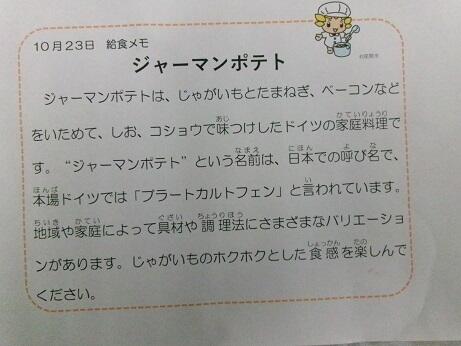 10月23日　給食メモ
ジャーマンポテト
ジャーマンポテトは、じゃがいもとたまねぎ、ベーコンなど
あじ かていりょうり
をいためて、しお、コショウで味つけしたドイツの家庭料理で
なまえ にほん よ な
す。“ジャーマンポテト”という名前は、日本での呼び名で、
ほんば い
本場ドイツでは「ブラートカルトフェン」と言われています。
ちいき かてい ぐざい ちょうりほう
地域や家庭によって具材や調理法にさまざまなバリエーショ
しょっかん たの
ンがあります。じゃがいものホクホクとした食感を楽しんで
ください。